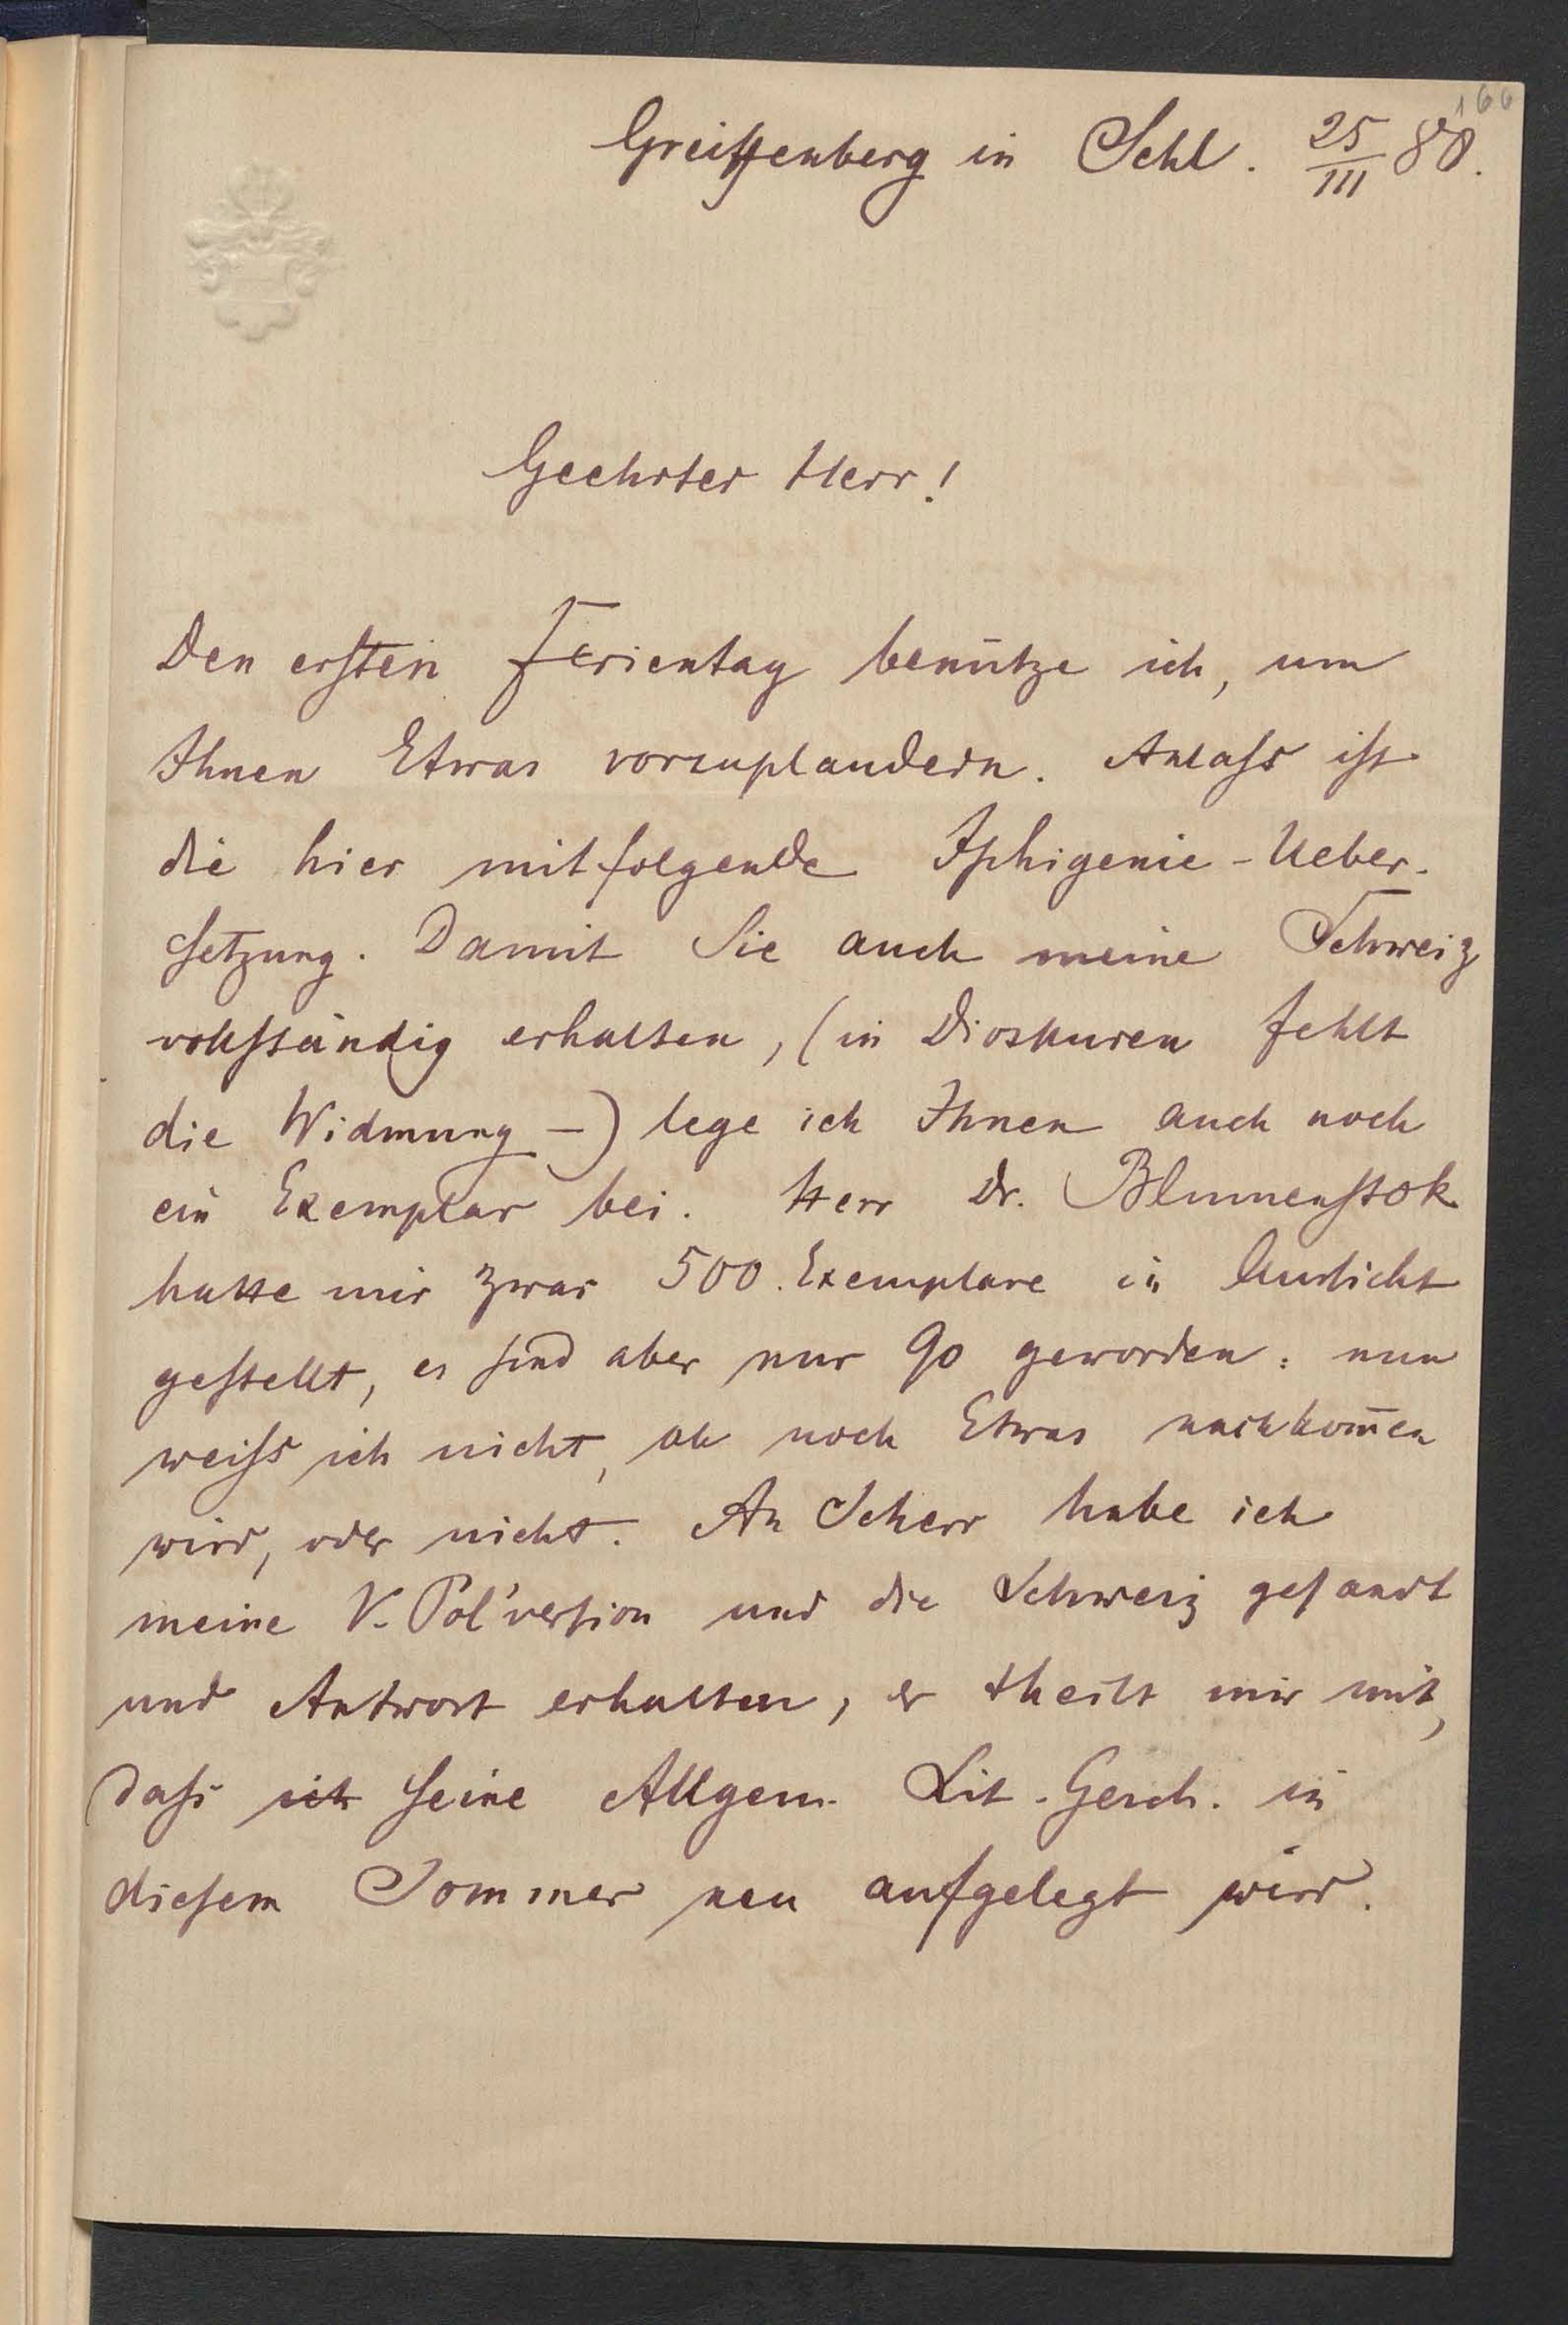 166
Greiffenberg in Schl. 25/III 80.
Geehrter Herr!
Den ersten Ferientag benütze ich, um
Ihnen Etwas vorzuplaudern. Anlaß ist
die hier mitfolgende Iphigenie-Ueber-
setzung. Damit Sie auch meine Schweiz
vollständig erhalten, (in Dioskuren fehlt
die Widmung -) lege ich Ihnen auch noch
ein Exemplar bei. Herr Dr. Blumenstok
hatte mir zwar 500 Exemplare in Aussicht
gestellt, es sind aber nur 90 geworden: nun
weiß ich nicht, ob noch Etwas nachkom̄en
wird, oder nicht. An Scherr habe ich
meine V. Pol'version und die Schweiz gesandt
und Antwort erhalten, er theilt mir mit,
daß ich seine Allgem. Lit. Gesch. in
diesem Sommer neu aufgelegt wird.